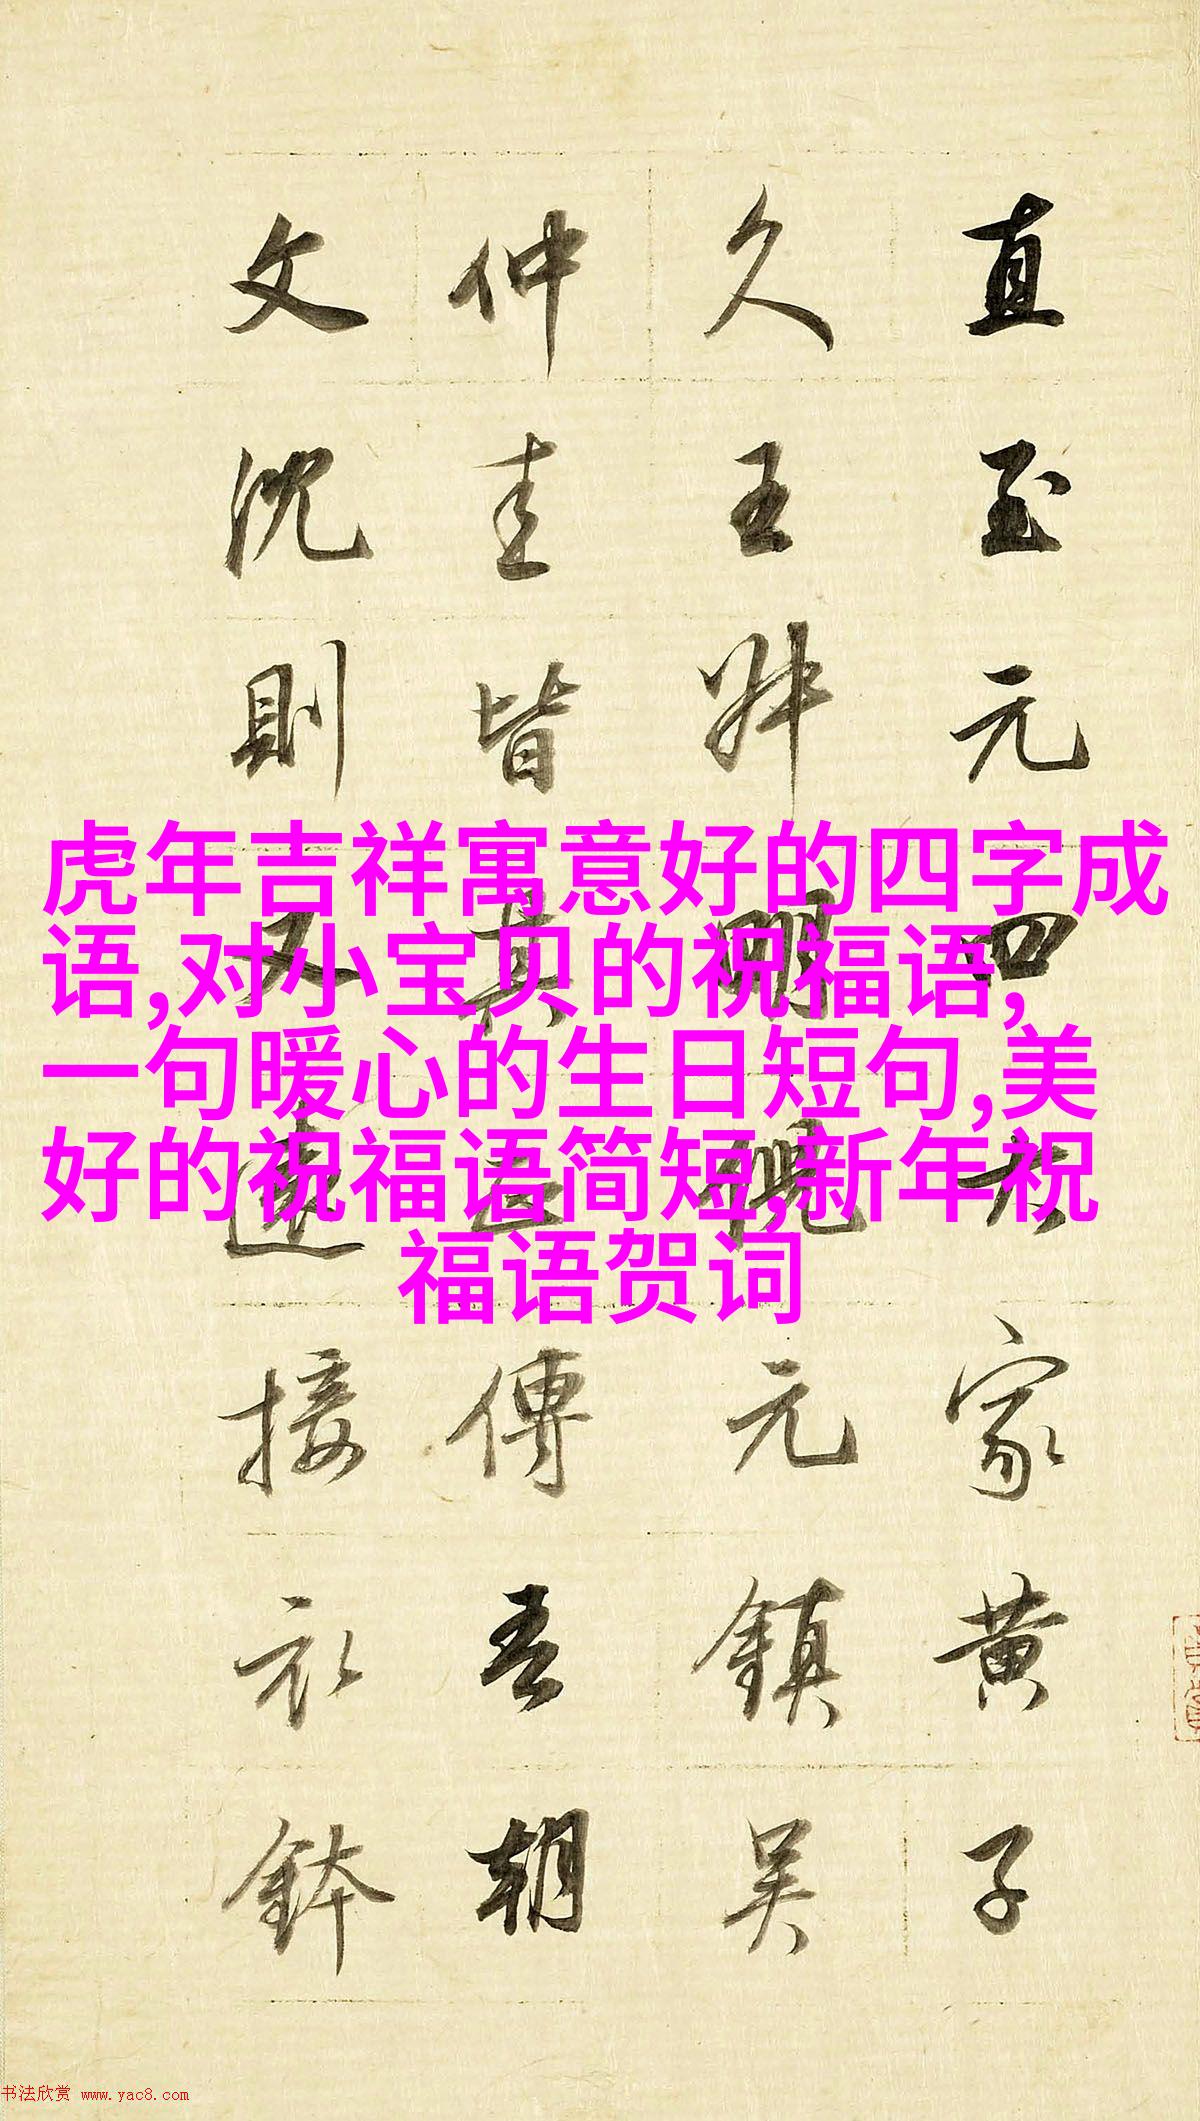 虎年吉祥寓意好的四字成
语,对小宝贝的祝福语,
一句暖心的生日短句,美
好的祝福语简短,新年祝
福语贺词
直至元四大家黃子
久王叔明倪元鎮吳
仲圭皆其正傳吾朝
文沈則又遠接衣鉢
书法欣赏 www.yac8.com